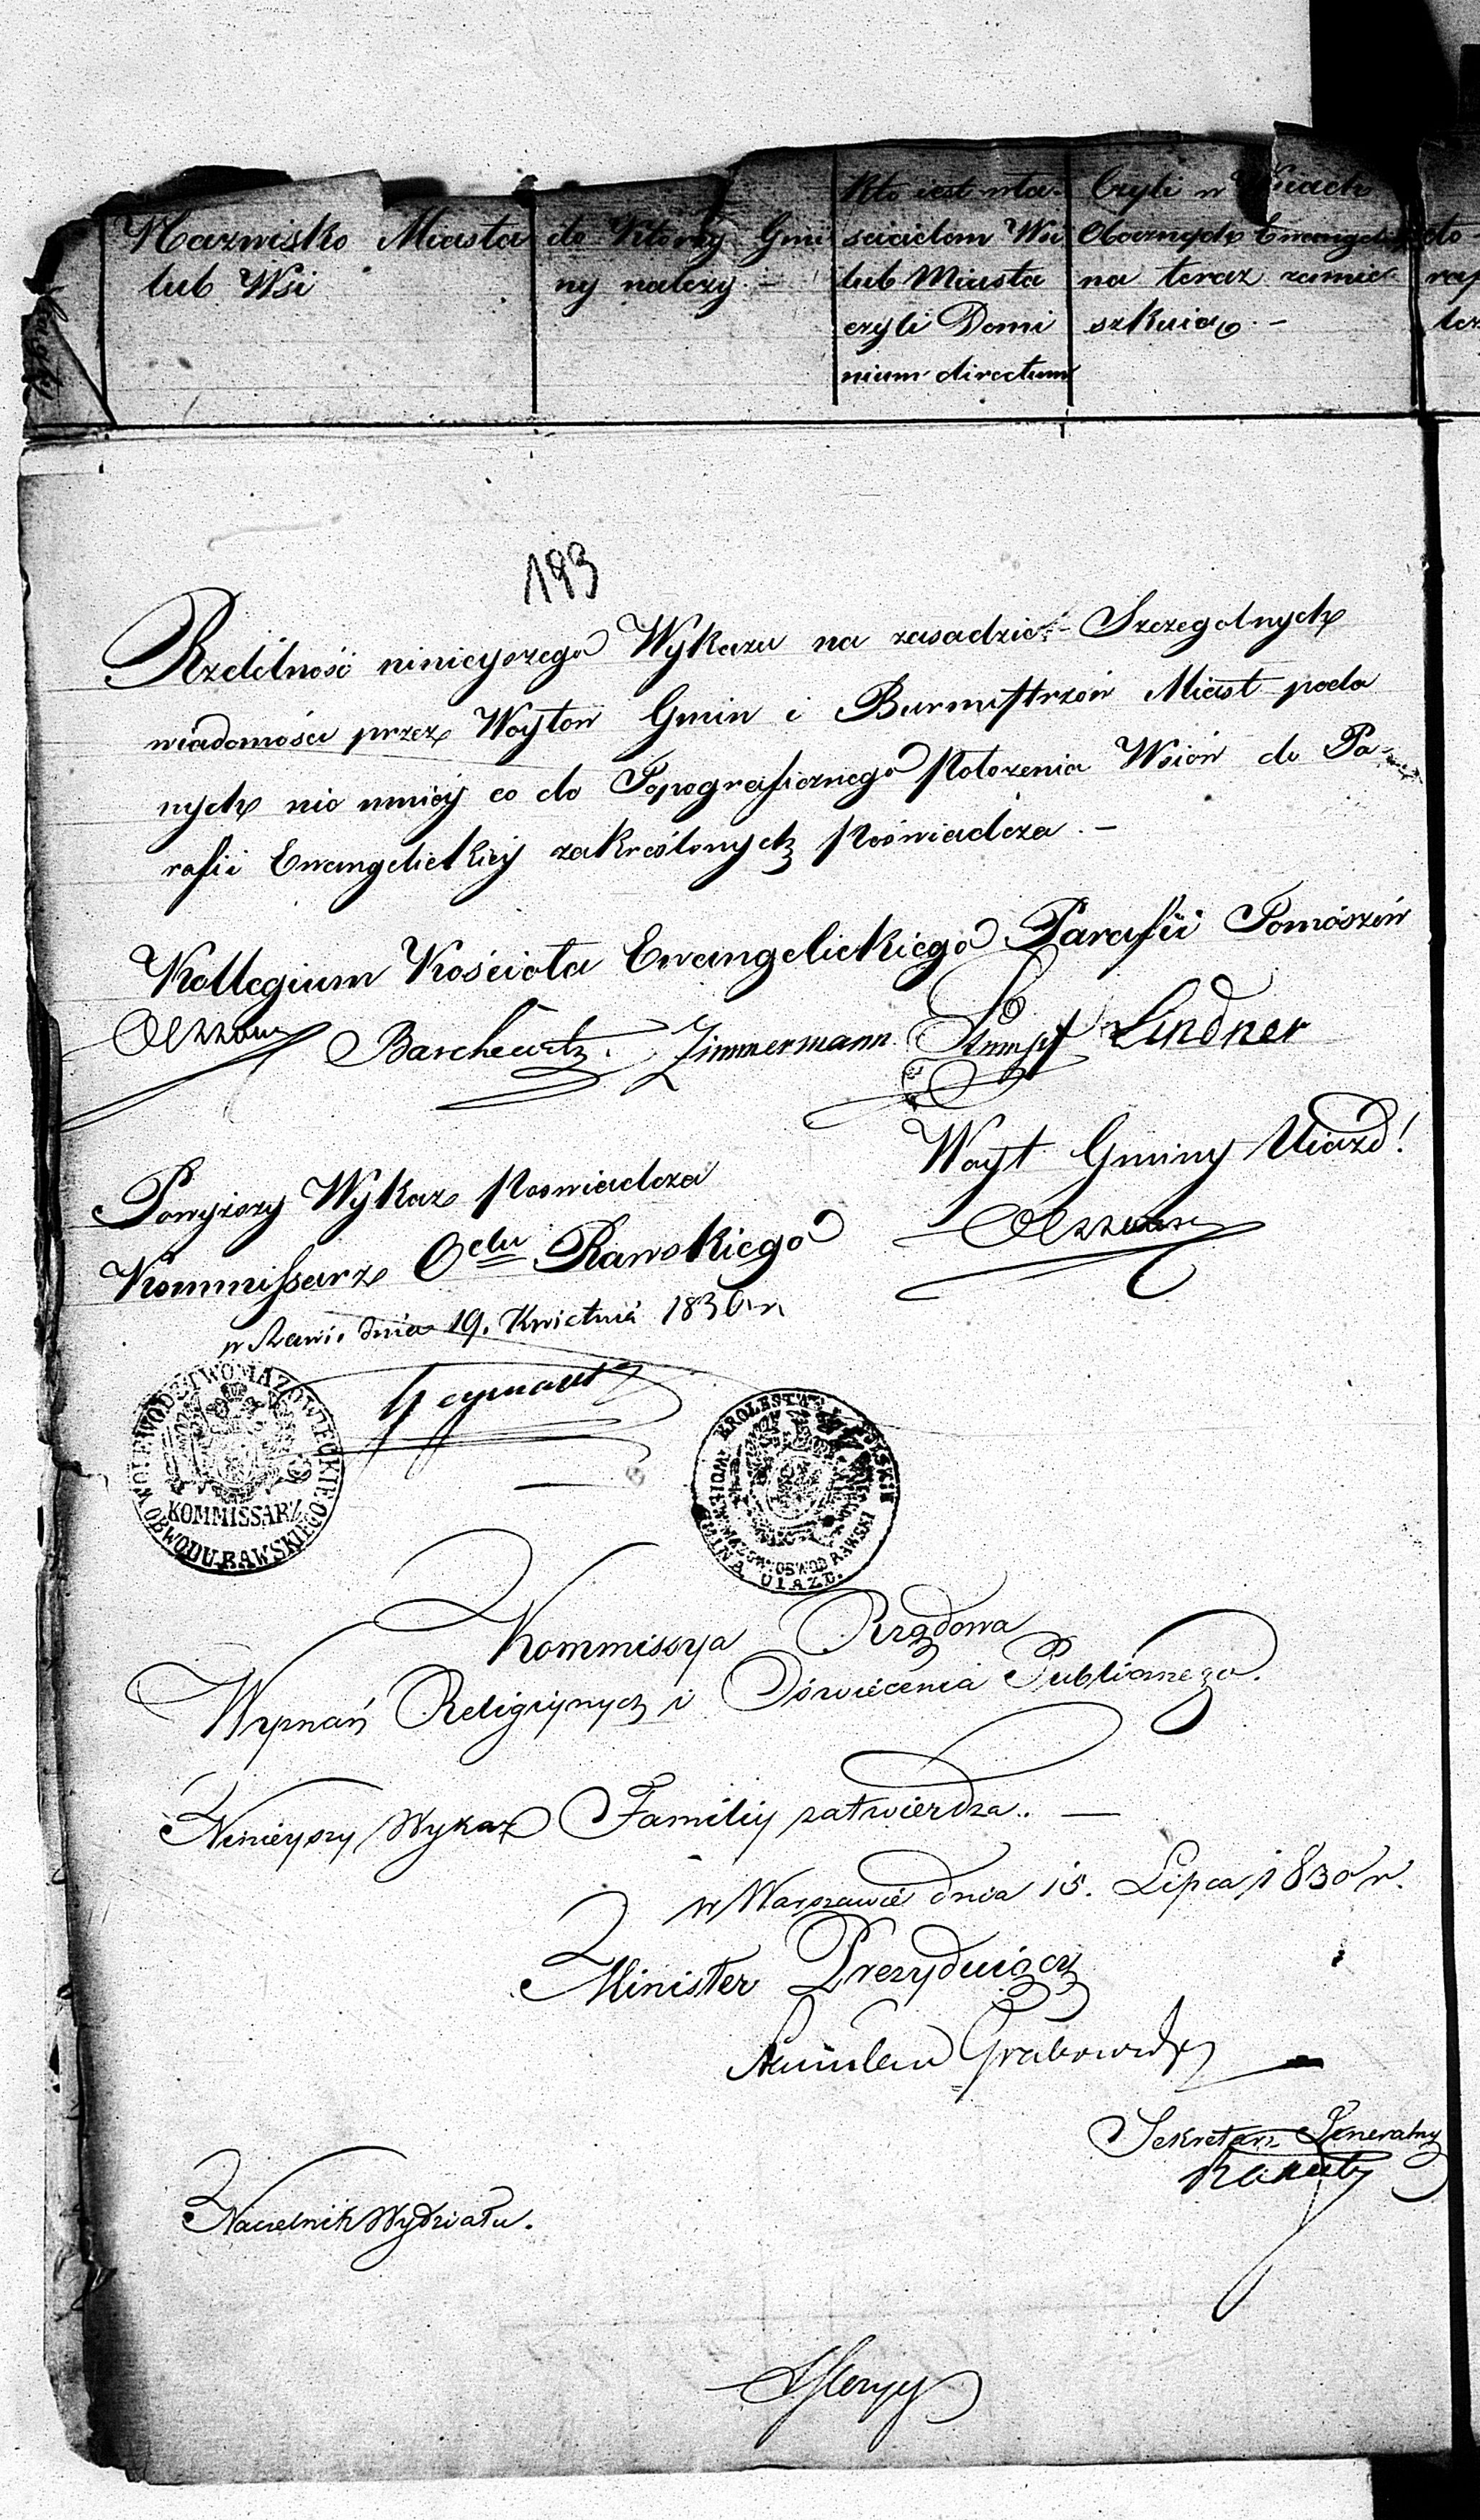 Nazwisko Miasta
lub Wsi
do Którey Gmi
ny należy. –
Kto iest wła-
ścicielem Wsi
lub Miasta
czyli Domi
nium directum
Czyli w Wsiach
Obcznych Ewangeli
na teraz zamie-
szkuią. –
do
193
Rzetelność ninieyszego Wykazu na zasadzie Szczegolnych
wiadomości przez Woytow Gmin i Burmistrzów Miast poda
nych nie mniéy co do Topograficznego Położenia Wsiów do Pa-
rafii Ewangelickiéy zakreślonych Poświadcza. –
Kollegium Kościoła Ewangelickiego Parafii Tomaszów
Barchewitz. Zimmermann. Stumpf Lindner
Woyt Gminy Uiazd!
Powyższy Wykaz Poświadcza
Kommissarz Odu Rawskiego
w Rawie dnia 19. Kwietnia 1830 r.
WOIEWODZTWO MAZOWIECKIE
KOMMISSARZ
OBWODU RAWSKIEGO
KROLESTWO POLSKIE
WOIEW: MAZOW: OBWOD RAWSKI
GMINA UIAZD.
Kommissya Rządowa
Wyznań Religiynych i Oświecenia Publicznego.
Ninieyszy Wykaz Familiy zatwierdza. —
w Warszawie dnia 15. Lipca 1830 r.
Minister Prezyduiący
Stanisław Grabowski
Sekretarz Jeneralny
Naczelnik Wydziału.